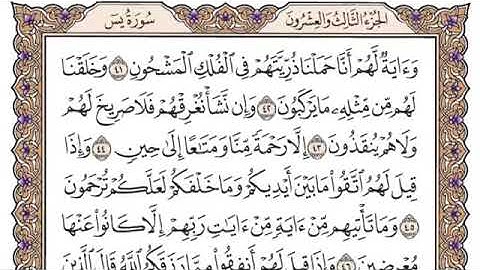 الجزء الثالث والعشرون سورة يس
وَءَايَةٌ لَّهُمْ أَنَّا حَمَلْنَا ذُرِّيَّتَهُمْ فِى ٱلْفُلْكِ ٱلْمَشْحُونِ ٤١ وَخَلَقْنَا
لَهُم مِّن مِّثْلِهِۦ مَا يَرْكَبُونَ ٤٢ وَإِن نَّشَأْ نُغْرِقْهُمْ فَلَا صَرِيخَ لَهُمْ
وَلَا هُمْ يُنقَذُونَ ٤٣ إِلَّا رَحْمَةً مِّنَّا وَمَتَٰعًا إِلَىٰ حِينٍ ٤٤ وَإِذَا
قِيلَ لَهُمُ ٱتَّقُوا۟ مَا بَيْنَ أَيْدِيكُمْ وَمَا خَلْفَكُمْ لَعَلَّكُمْ تُرْحَمُونَ
٤٥ وَمَا تَأْتِيهِم مِّنْ ءَايَةٍ مِّنْ ءَايَٰتِ رَبِّهِمْ إِلَّا كَانُوا۟ عَنْهَا
مُعْرِضِينَ ٤٦ وَإِذَا قِيلَ لَهُمْ أَنفِقُوا۟ مِمَّا رَزَقَكُمُ ٱللَّهُ قَالَ ٱلَّذِينَ